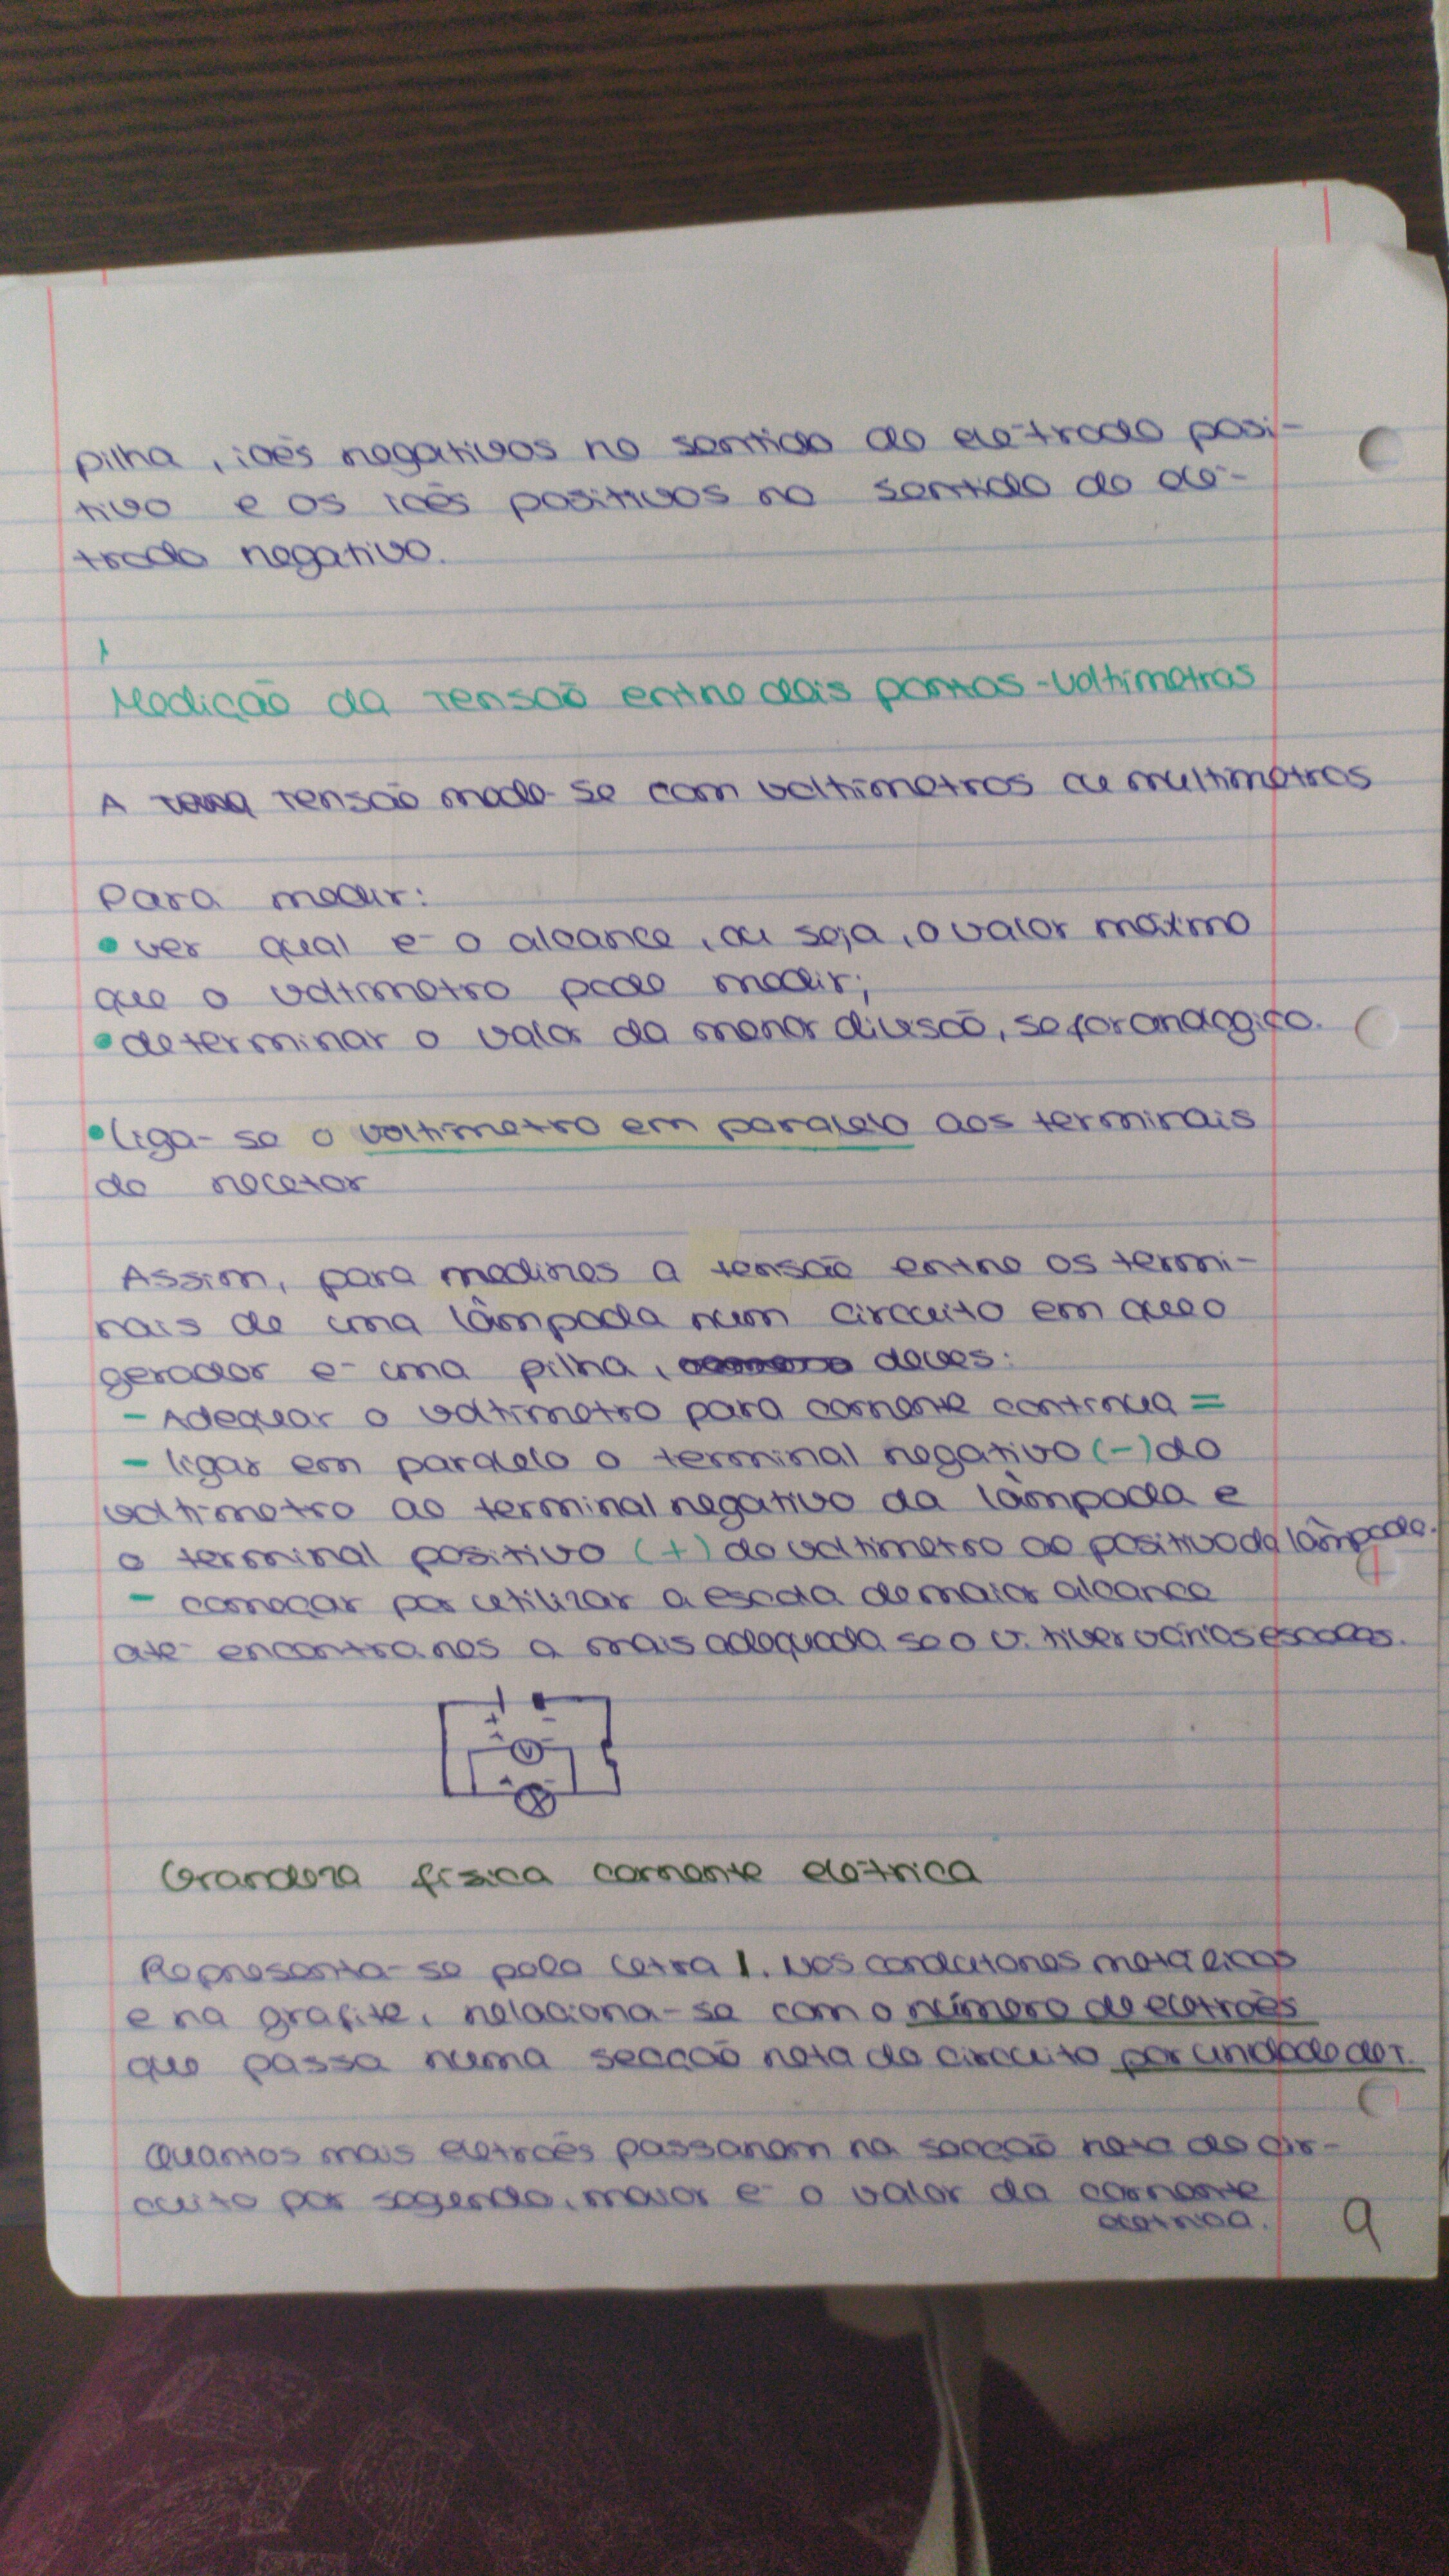 pilha, iões negativos no sentido do elétrodo posi-
tivo e os iões positivos no sentido do elé-
trodo negativo.
Medição da tensão entre dois pontos - voltímetros
A tensão mede-se com voltímetros ou multímetros
Para medir:
• ver qual é o alcance, ou seja, o valor máximo
que o voltímetro pode medir;
• determinar o valor da menor divisão, se for analógico.
• liga-se o voltímetro em paralelo aos terminais
do recetor
Assim, para medires a tensão entre os termi-
nais de uma lâmpada num circuito em que o
gerador é uma pilha, deves:
- Adequar o voltímetro para corrente contínua =
- ligar em paralelo o terminal negativo (-) do
voltímetro ao terminal negativo da lâmpada e
o terminal positivo (+) do voltímetro ao positivo da lâmpada.
- começar por utilizar a escala de maior alcance
até encontrares a mais adequada se o v. tiver várias escalas.
+ -
V
Grandeza física corrente elétrica
Representa-se pela letra I. Nos condutores metálicos
e na grafite, relaciona-se com o número de eletrões
que passa numa secção reta do circuito por unidade de T.
Quantos mais eletrões passarem na secção reta do cir-
cuito por segundo, maior é o valor da corrente
elétrica.
9